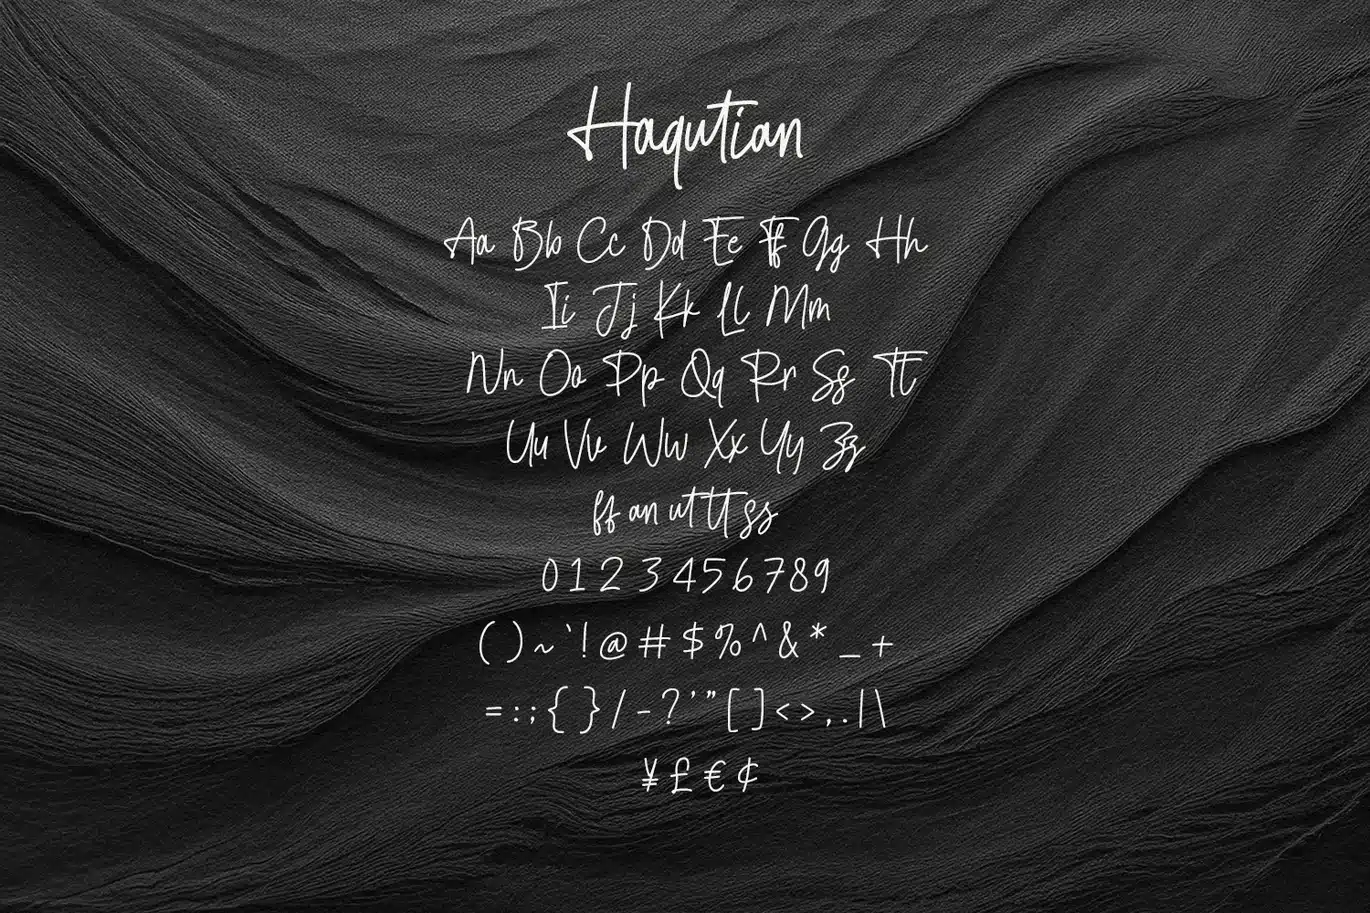 Haqutian
Aa Bb Cc Dd Ee Ff Gg Hh
Ii Jj Kk Ll Mm
Nn Oo Pp Qq Rr Ss Tt
Uu Vv Ww Xx Yy Zz
ff an ut tt ss
0 1 2 3 4 5 6 7 8 9
( ) ~ ` ! @ # $ % ^ & * _ +
= : ; { } / - ? ' " [ ] < > , . | \
¥ £ € ¢